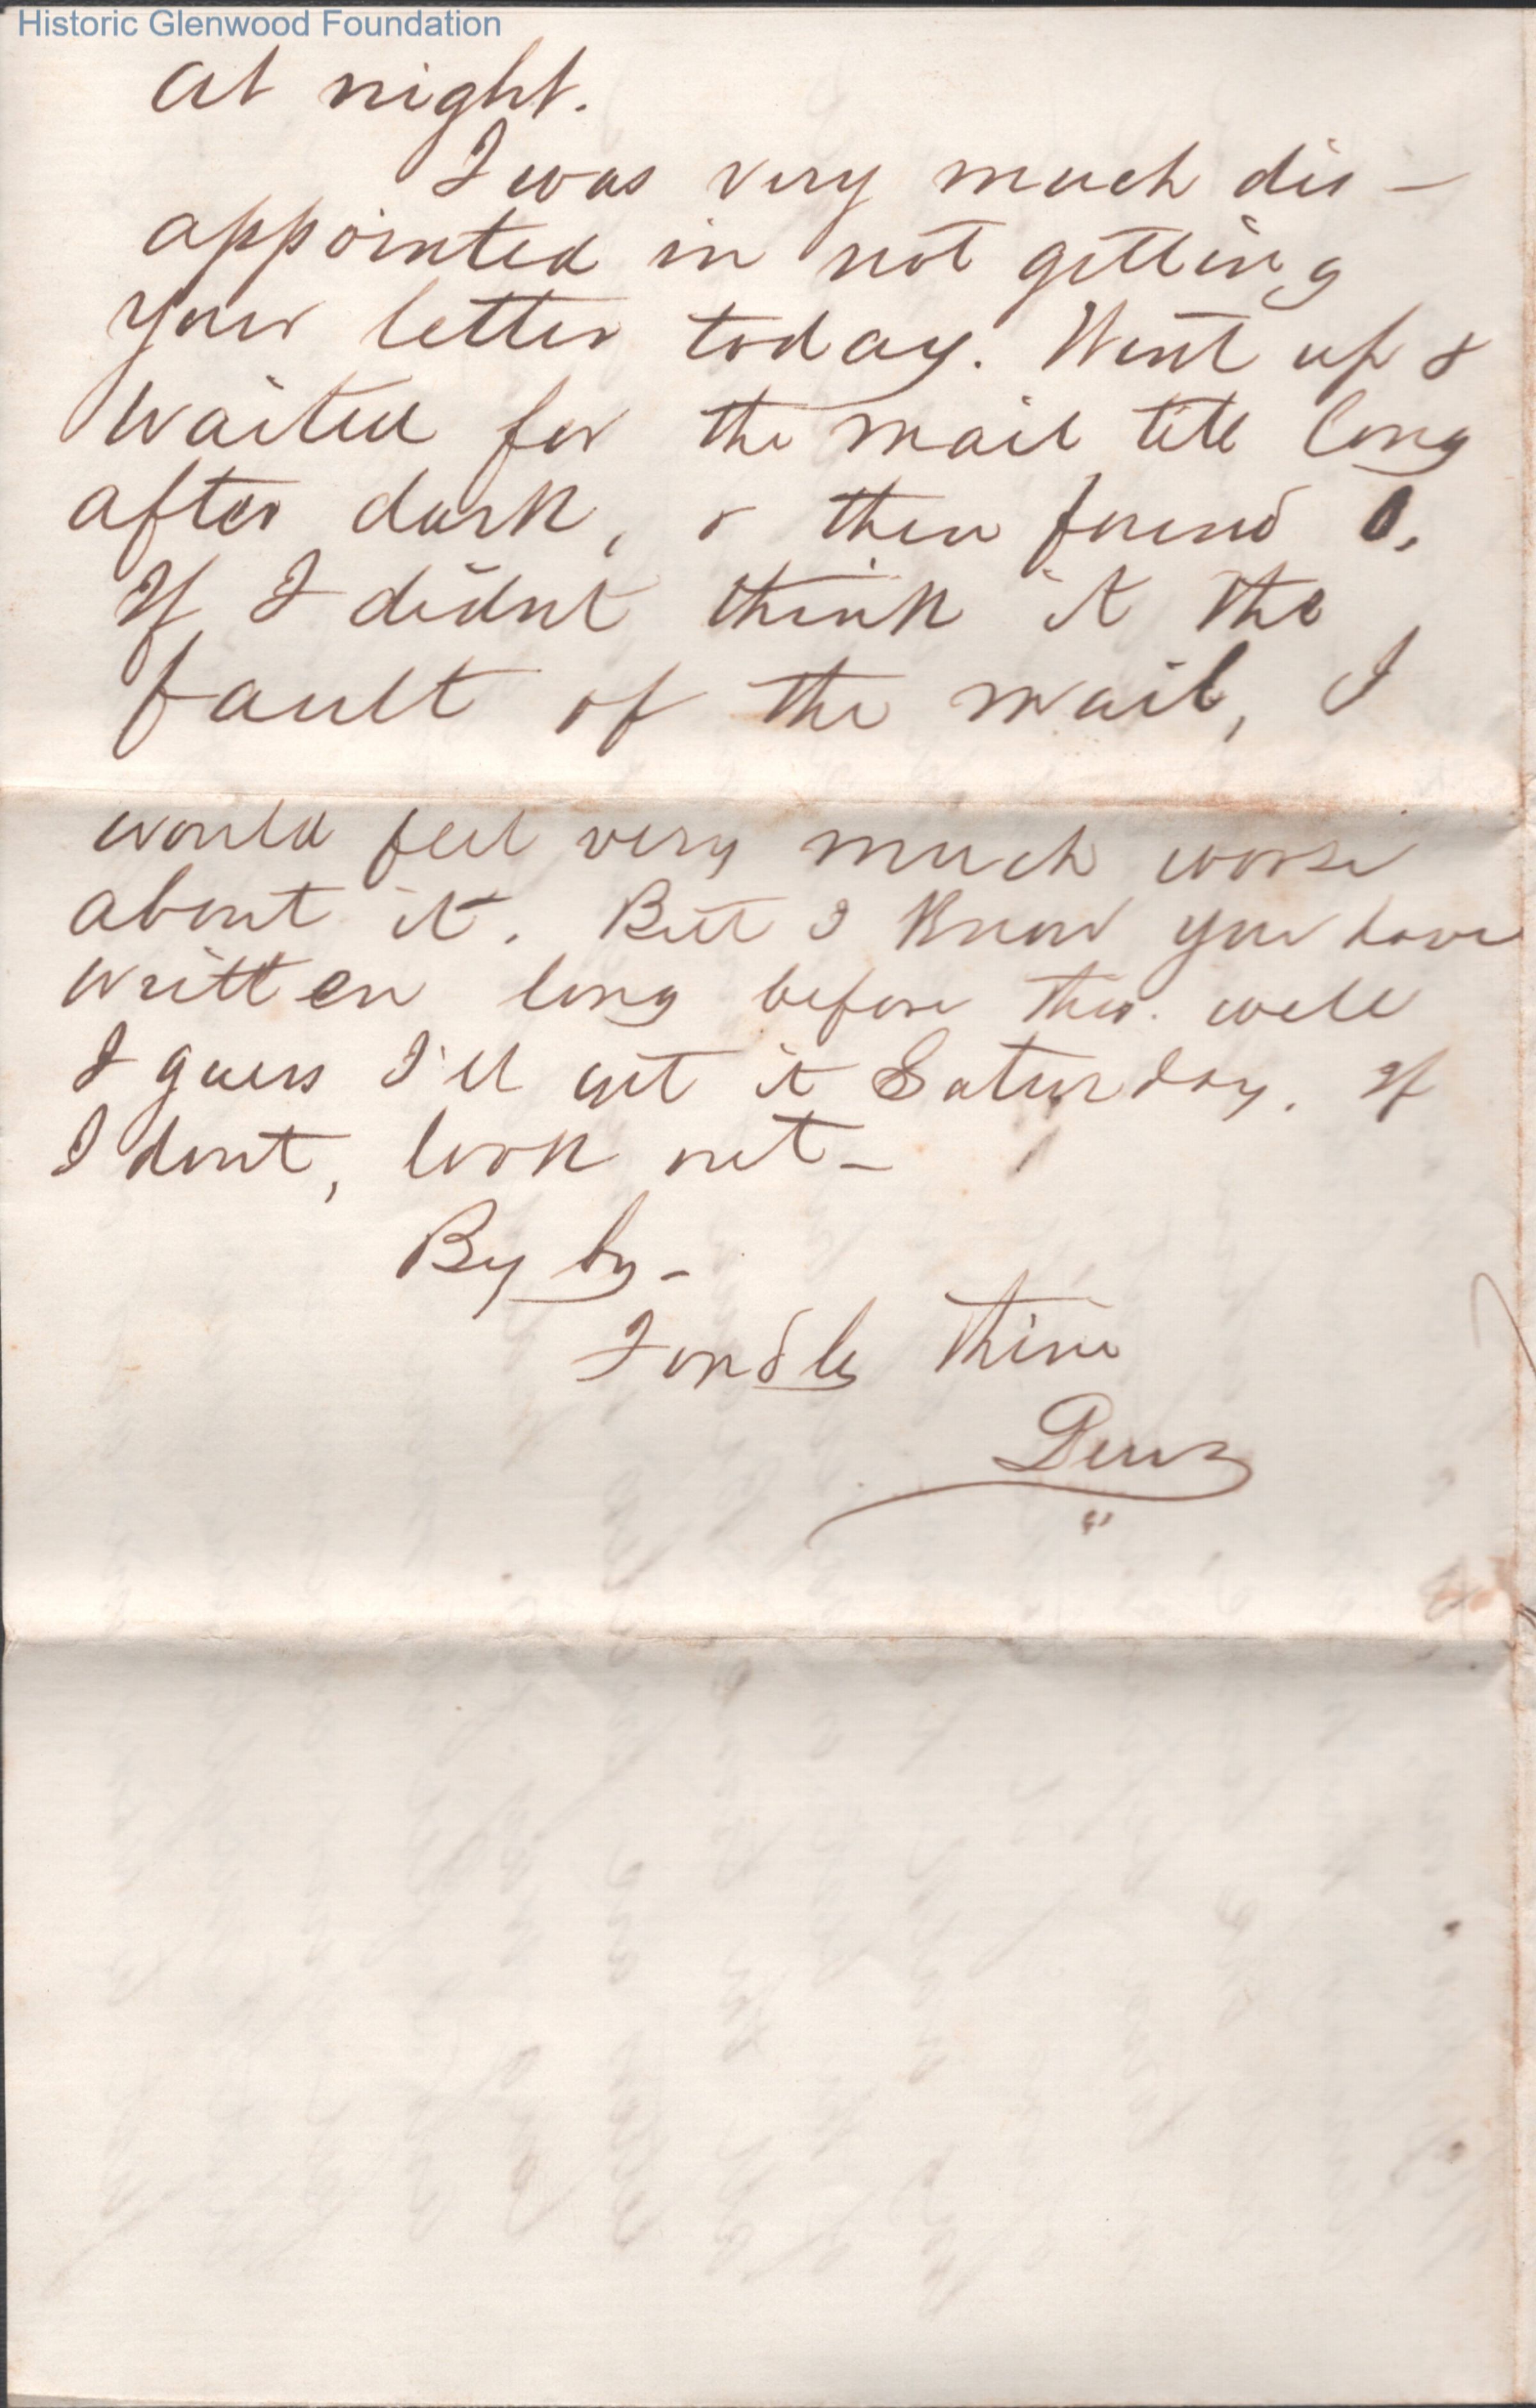 Historic Glenwood Foundation
at night.
I was very much dis-
appointed in not getting
your letter today. Went up &
waited for the mail till long
after dark, & then found 0.
If I didnt think it the
fault of the mail, I
would feel very much worse
about it. But I know you have
written long before this. well
I guess I'll get it Saturday. If
I dont, look out-
By by-
Fondly thine